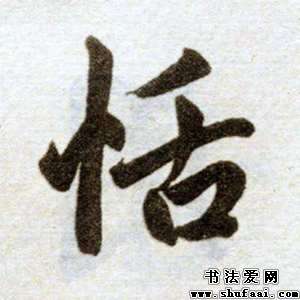 恬
书法爱网
www.shufaai.com